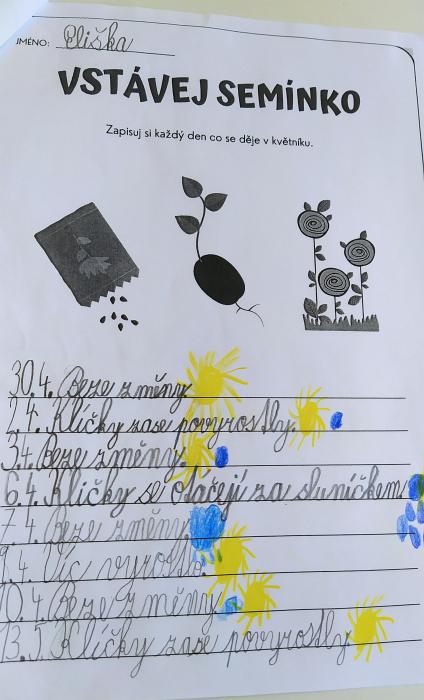 JMÉNO: Eliška
VSTÁVEJ SEMÍNKO
Zapisuj si každý den co se děje v květníku.
30.4. Beze změny.
2.4. Klíčky zase povyrostly.
3.4. Beze změny.
6.4. Klíčky se otáčejí za sluníčkem.
7.4. Beze změny.
9.4. Víc vyrostl
10.4. Beze změny.
13.5. Klíčky zase povyrostly